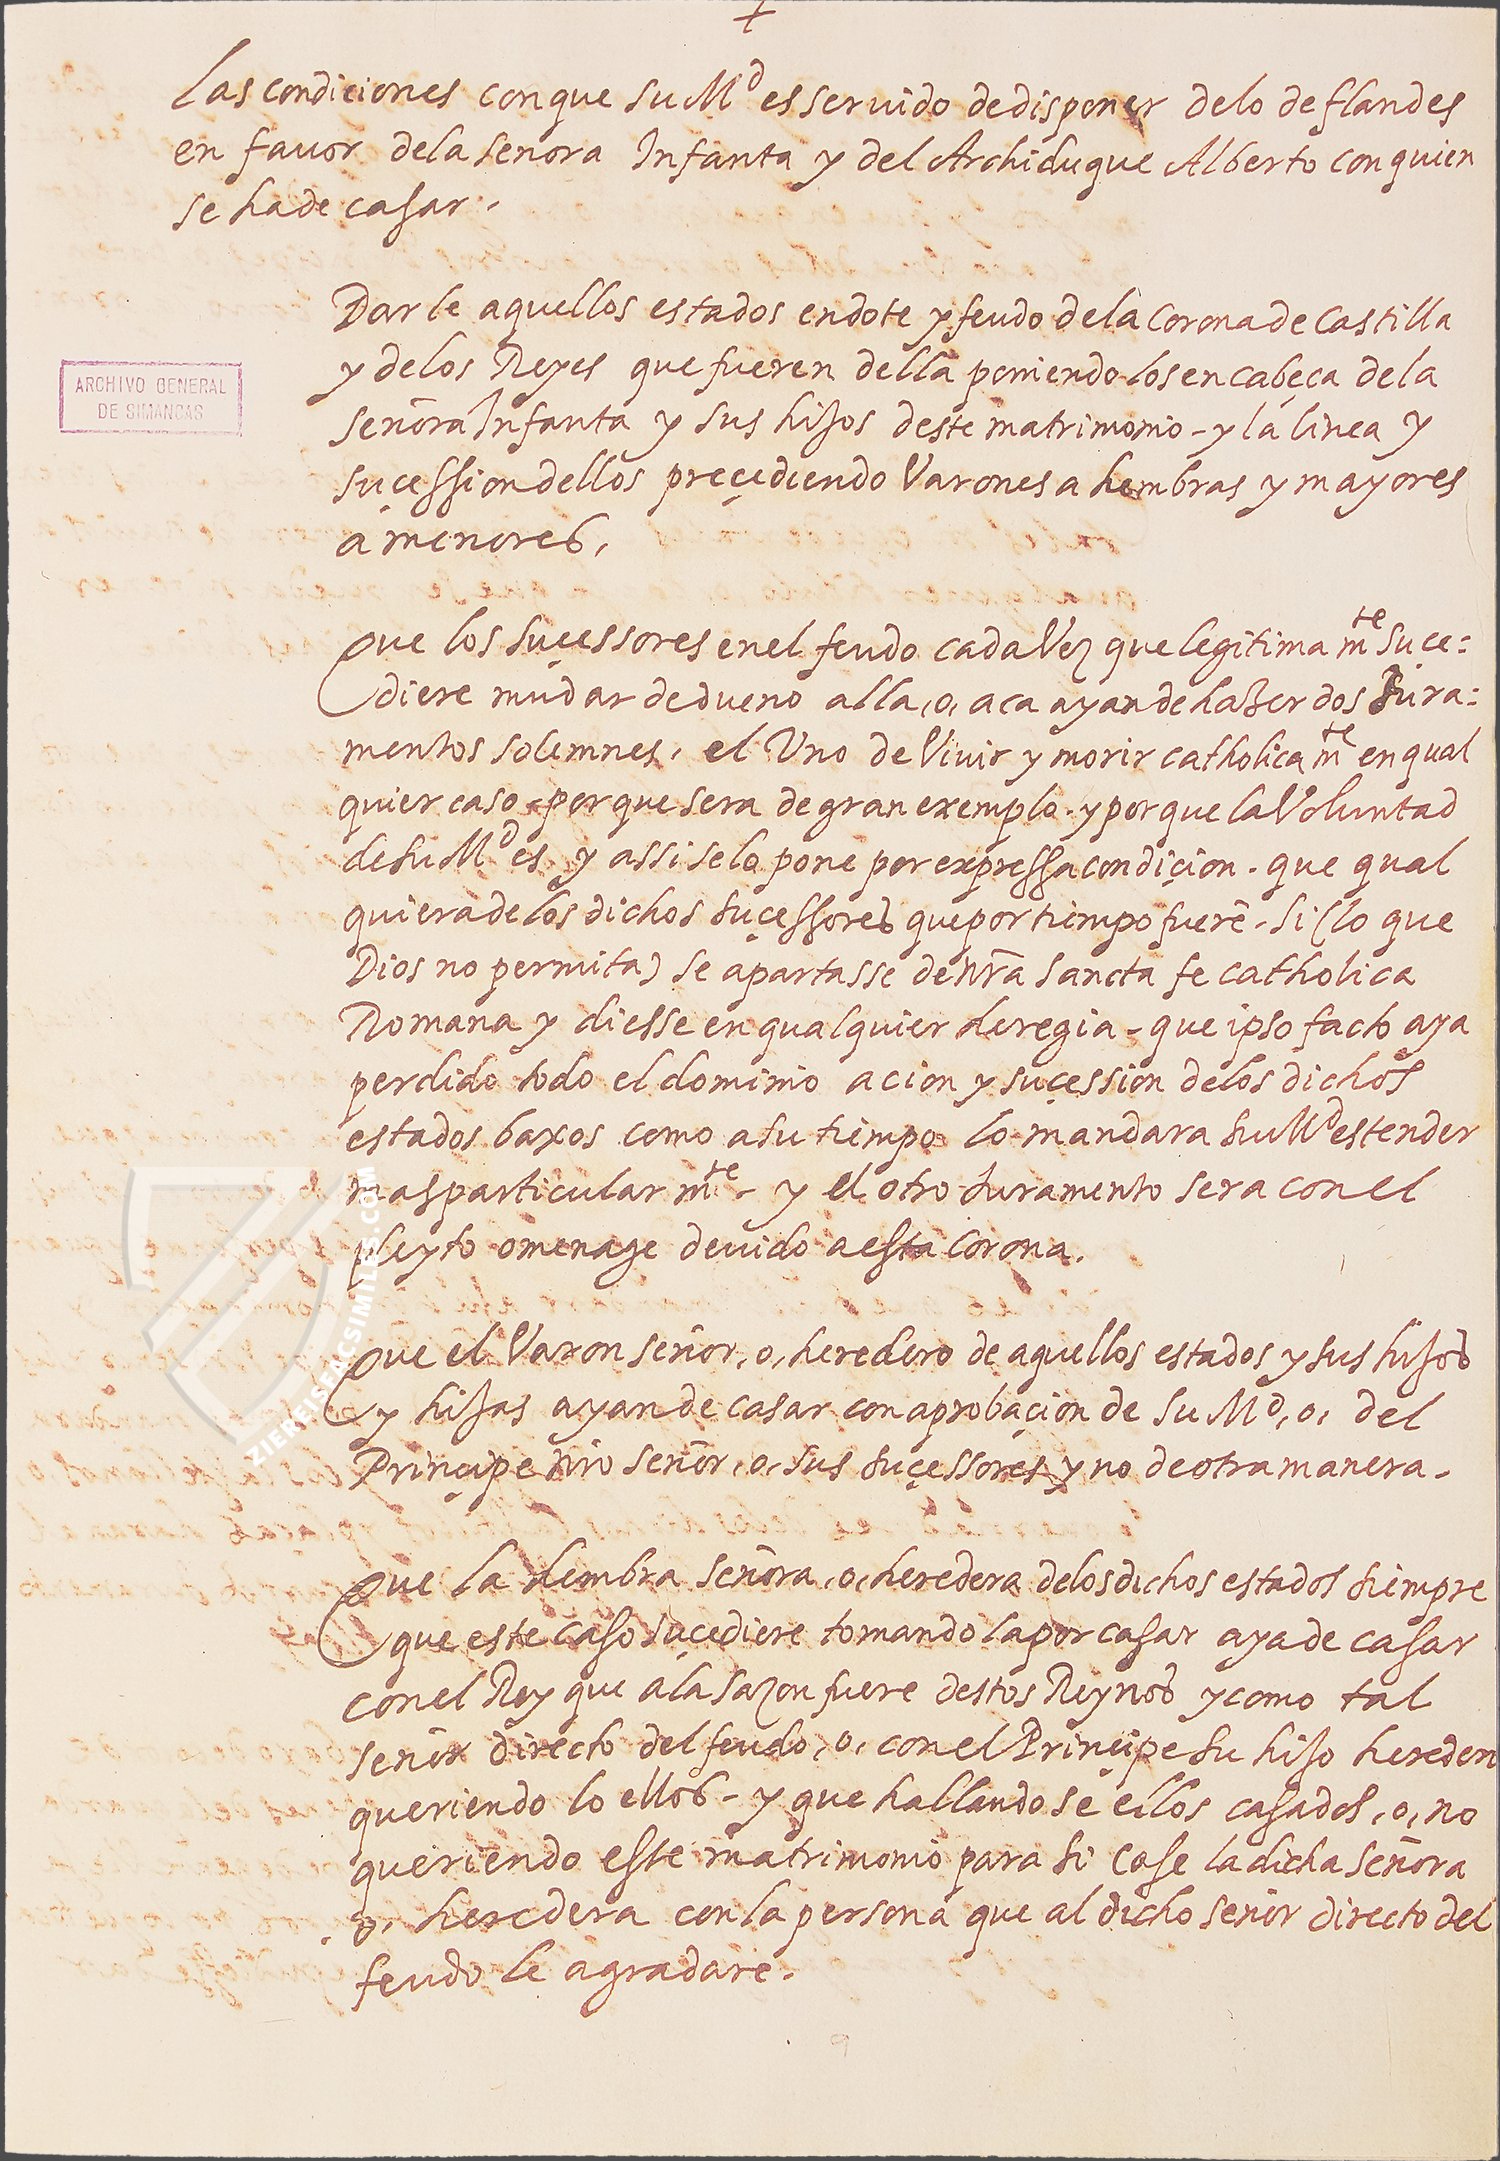 +
Las condiciones con que su Md es servido de disponer de lo de flandes
en fauor dela señora Infanta y del Archiduque Alberto con quien
se ha de casar.
Darle aquellos estados en dote y feudo de la Corona de Castilla
y de los Reyes que fueren della poniendo los en cabeça de la
señora Infanta y sus hijos deste matrimonio - y la linea y
suçession dellos preçediendo Varones a hembras y mayores
a menores,
ARCHIVO GENERAL
DE SIMANCAS
Que los suçessores en el feudo cada Vez que legitima mte suçe=
diere mudar de dueno alla, o, aca ayan de hazer dos Jura=
mentos solemnes, el Uno de Viuir y morir catholica mte en qual
quier caso - porque sera de gran exemplo - y porque la Voluntad
de su Md es y assi se lo pone por expressa condiçion - que qual
quiera de los dichos suçessores que por tiempo fuerē - si (lo que
Dios no permita) se apartasse de nr̄a sancta fe catholica
Romana y diesse en qualquier heregia - que ipso facto aya
perdido todo el dominio acion y suçession de los dichos
estados baxos como a su tiempo lo mandara su Md estender
mas particular mte - y el otro Juramento sera con el
pleyto omenage deuido a esta Corona.
Que el Varon señor, o, heredero de aquellos estados y sus hijos
y hijas ayan de casar con aprobaçion de su Md, o, del
Prinçipe nr̄o señor, o, sus suçessores y no de otra manera -
Que la hembra señora, o, heredera de los dichos estados siempre
que este caso suçediere tomando la por casar aya de casar
con el Rey que a la sazon fuere destos Reynos y como tal
señor directo del feudo, o, con el Prinçipe su hijo hereder
queriendo lo ellos - y que hallando se ellos casados, o, no
queriendo este matrimonio para si case la dicha señora
o, heredera con la persona que al dicho señor directo del
feudo le agradare.
9
ZIEREISFACSIMILES.COM